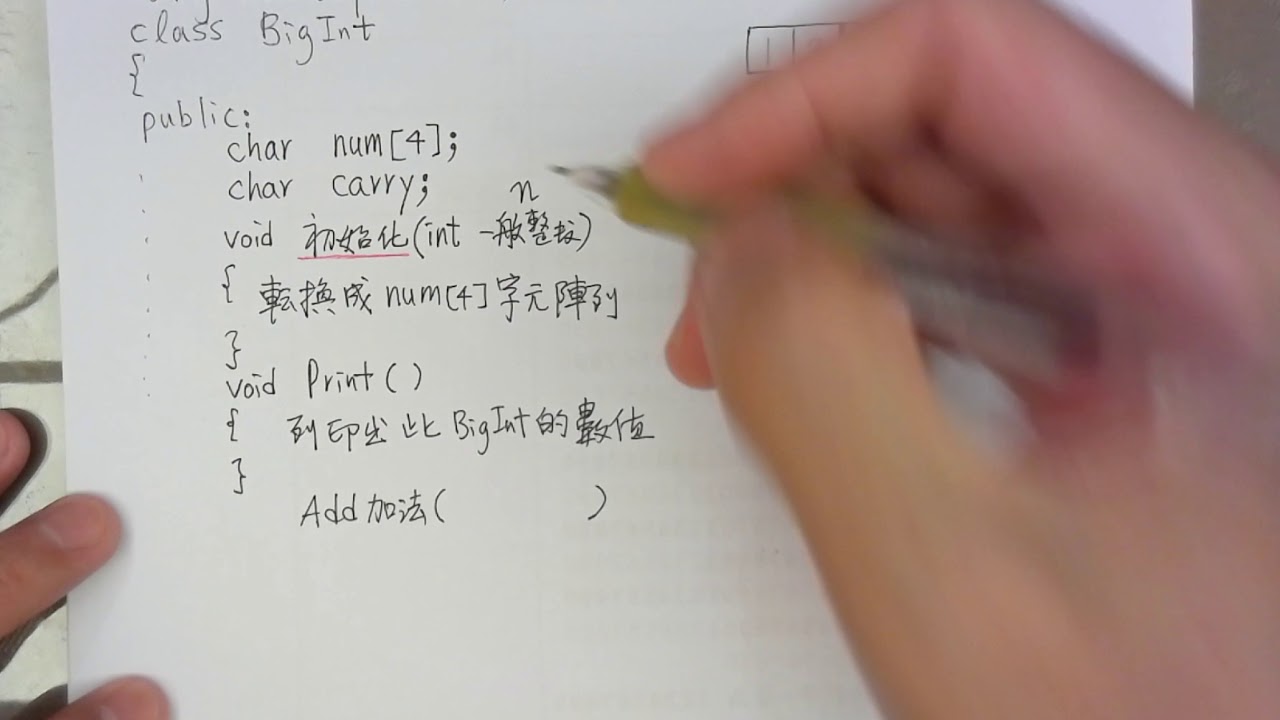 class BigInt
{
public:
char num[4];
char carry;
n
void 初始化(int 一般整數)
{ 転換成 num[4] 字元陣列
}
void Print()
{ 列印出此 BigInt 的數值
}
Add 加法( )